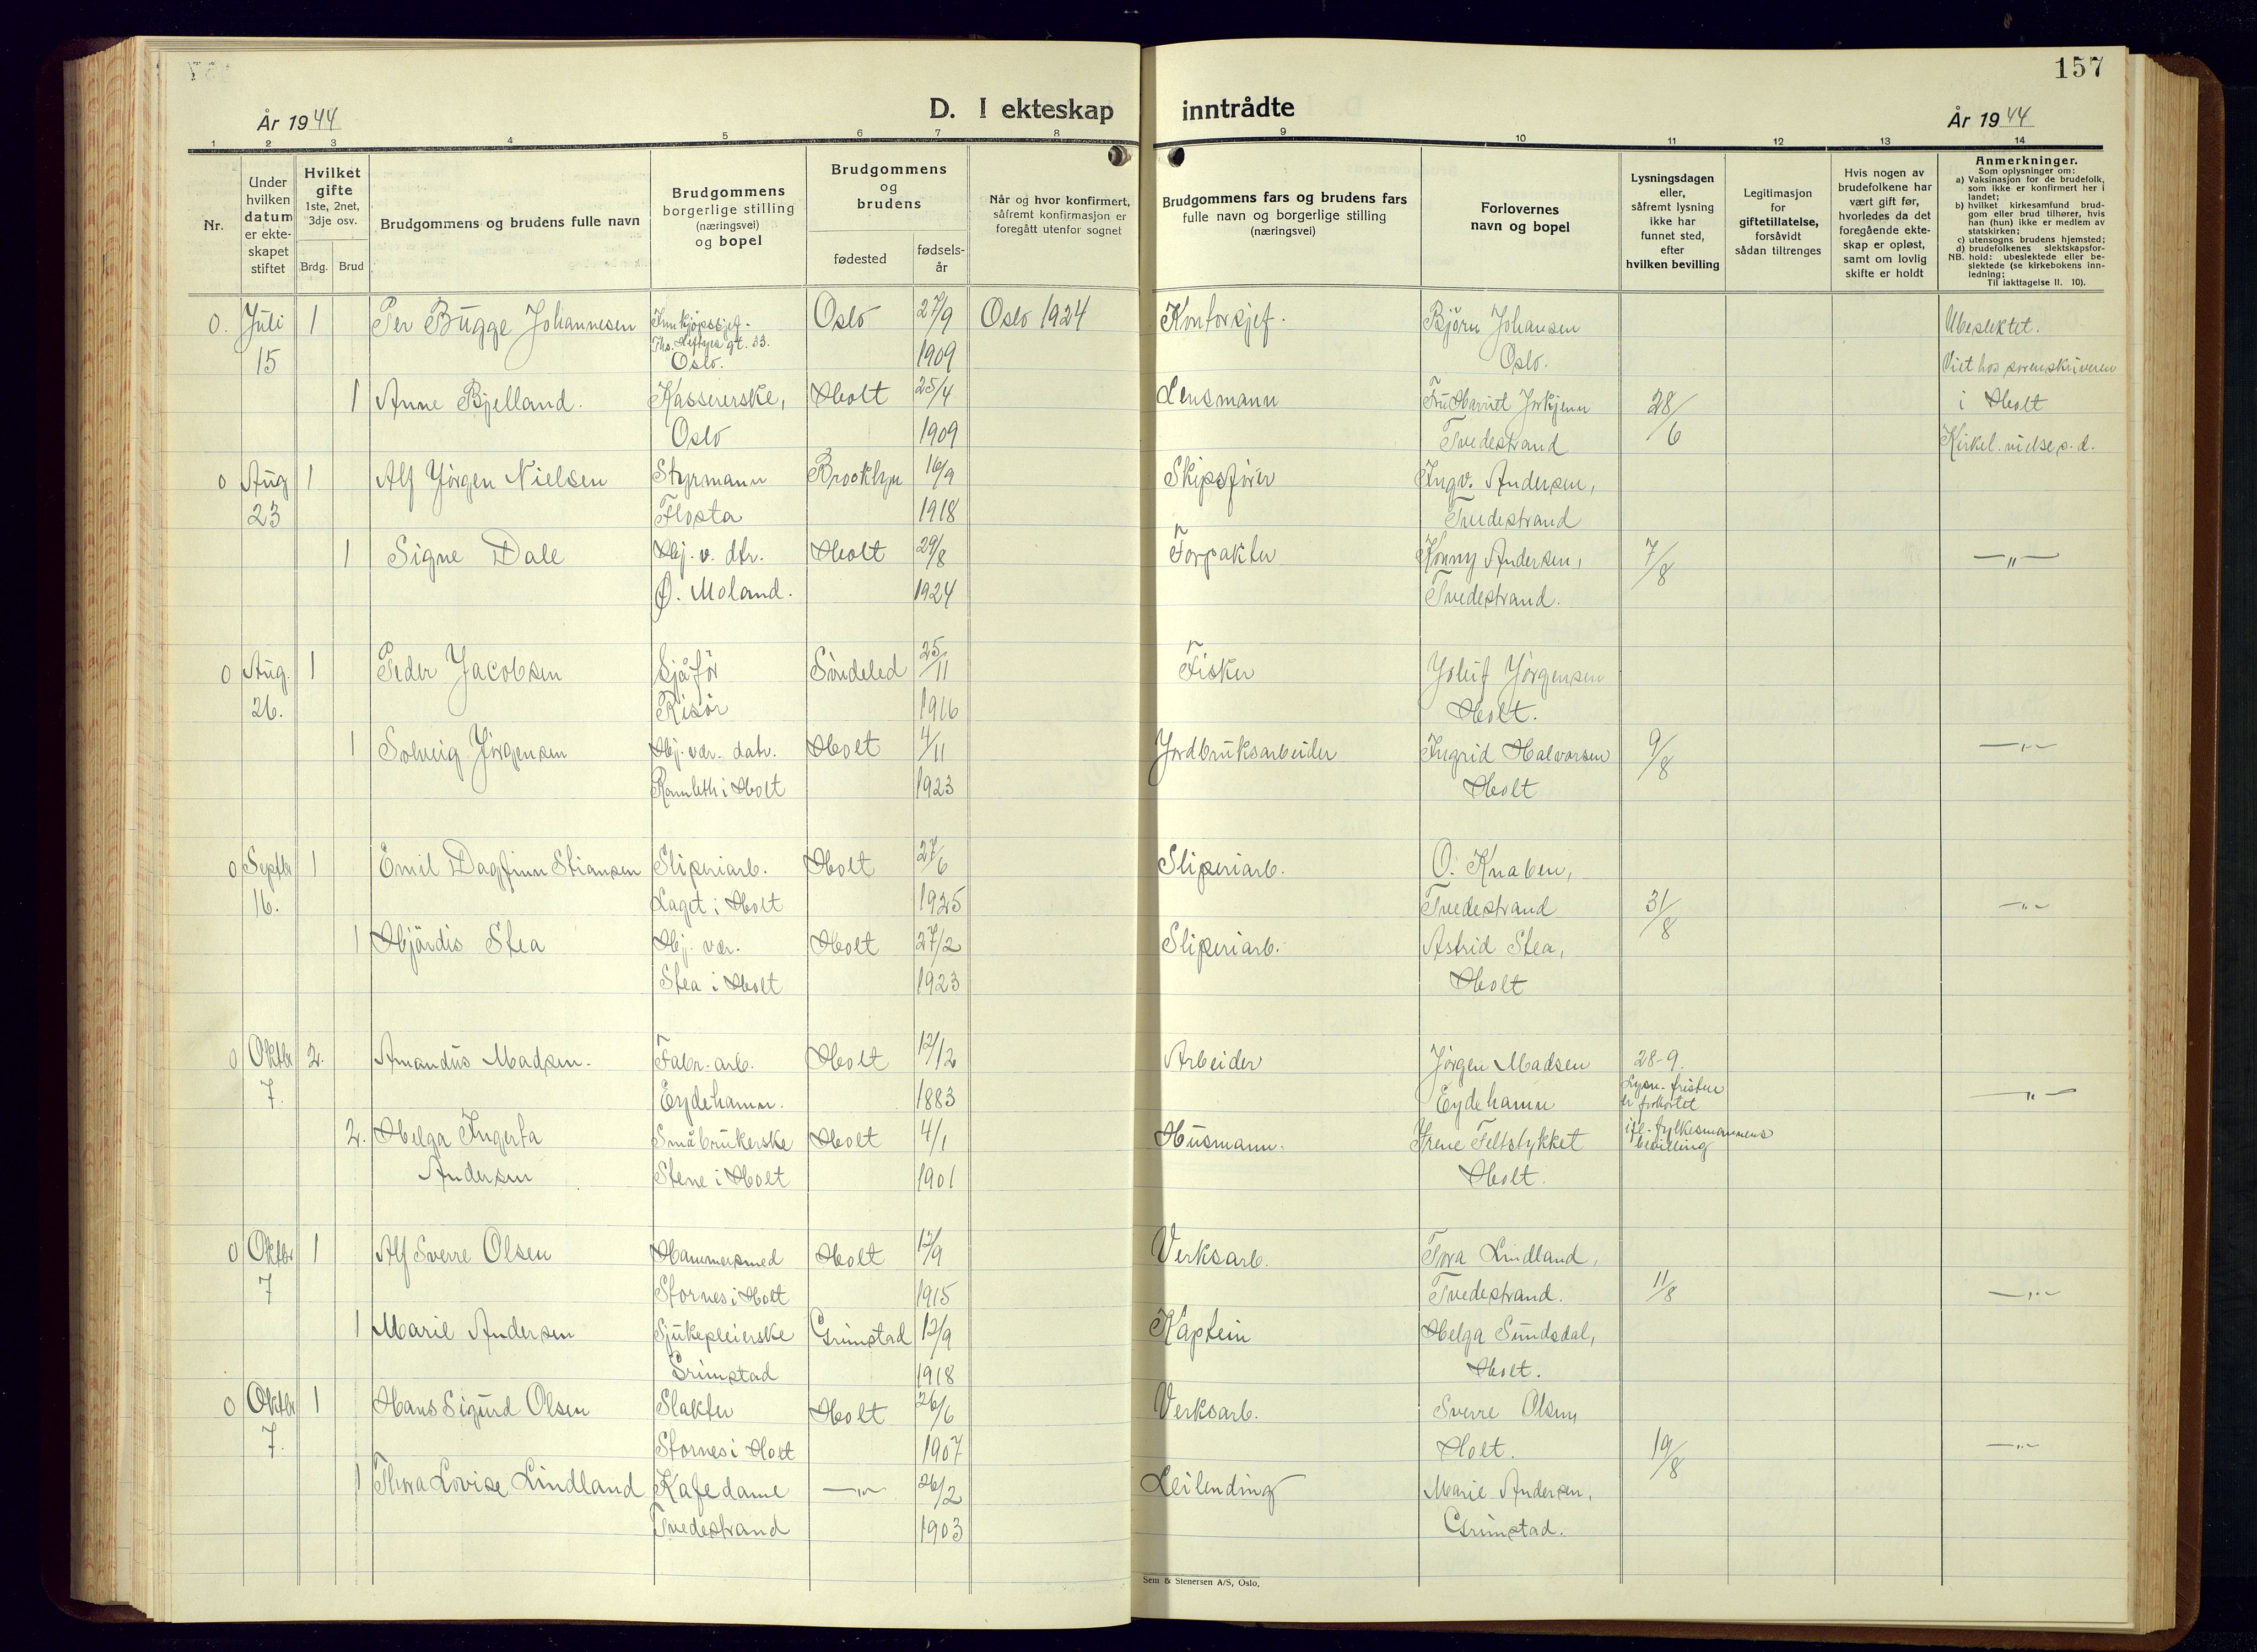 157
D. I ekteskap inntrådte
År 1944
År 1944
1 2 3 4 5 6 7 8 9 10 11 12 13 14
Nr.
Under
hvilken
datum
er ekte-
skapet
stiftet
Hvilket
gifte
1ste, 2net,
3dje osv.
Brdg. Brud
Brudgommens og brudens fulle navn
Brudgommens
borgerlige stilling
(næringsvei)
og bopel
Brudgommens
og
brudens
fødested
fødsels-
år
Når og hvor konfirmert,
såfremt konfirmasjon er
foregått utenfor sognet
Brudgommens fars og brudens fars
fulle navn og borgerlige stilling
(næringsvei)
Forlovernes
navn og bopel
Lysningsdagen
eller,
såfremt lysning
ikke har
funnet sted,
efter
hvilken bevilling
Legitimasjon
for
giftetillatelse,
forsåvidt
sådan tiltrenges
Hvis nogen av
brudefolkene har
vært gift før,
hvorledes da det
foregående ekte-
skap er opløst,
samt om lovlig
skifte er holdt
Anmerkninger.
Som oplysninger om:
a) Vaksinasjon for de brudefolk,
som ikke er konfirmert her i
landet;
b) hvilket kirkesamfund brud-
gom eller brud tilhører, hvis
han (hun) ikke er medlem av
statskirken;
c) utensogns brudens hjemsted;
d) brudefolkenes slektskapsfor-
NB. hold: ubeslektede eller be-
slektede (se kirkebokens inn-
ledning;
Til iakttagelse II. 10).
0. Juli 1 Per Bugge Johannesen Innkjøpssjef. Oslo 27/9 Oslo 1924 Kontorsjef. Bjørn Johansen Ubeslektet.
15 Ths. Heftyes gt. 33.
Oslo. 1909 Oslo. Viet hos sorenskriveren
1 Anne Bjelland. Kassererske, Holt 25/4 Lensmann Fru Harriet 28/6 i Holt
Oslo 1909 Tvedestrand Kirkel. vielse s. d.
0 Aug 1 Alf Jörgen Nielsen Styrmann Brooklyn 16/9 Skipsfører Ingv. Andersen,
23 Flosta 1918 Tvedestrand
1 Signe Dale Hj. v. dtr. Holt 29/8 Forpakter Konny Andersen, 7/8 —"—
Ø. Moland. 1924 Tvedestrand.
0 Aug. 1 Peder Jacobsen Sjåfør Söndeled 25/11 Fisker Joleif Jörgensen
26. Risör 1916 Holt.
1 Solveig Jörgensen Hj. vær. datr. Holt 4/11 Jordbruksarbeider Ingrid Halvorsen 9/8 —"—
Ramleth i Holt 1923 Holt
0 Septbr 1 Emil Dagfinn Stiansen Sliperiarb. Holt 27/6 Sliperiarb. O. Knaben,
16. Laget i Holt 1925 Tvedestrand 31/8 —"—
1 Hjördis Stea Hj. vær. Holt 27/2 Sliperiarb. Astrid Stea,
Stea i Holt 1923 Holt
0 Oktbr 2. Amandus Madsen. Fabr. arb. Holt 12/12 Arbeider Jörgen Madsen 28-9.
7. Eydehamn. 1883 Eydehamn Lysn. fristen —"—
er forkortet
2. Helga Ingerta Småbrukerske Holt 4/1 Husmann. Irene Feltstykket ifl. fylkesmannens
bevilling
Andersen Stene i Holt 1901 Holt.
0 Oktbr 1 Alf Sverre Olsen Hammersmed Holt 12/9 Verksarb. Tora Lindland,
7 Stornes i Holt 1915 Tvedestrand. 11/8 —"—
1 Marie Andersen Sjukepleierske Grimstad 12/9 Kaptein Helga Sundsdal,
Grimstad 1918 Holt.
0 Oktbr 1 Hans Sigurd Olsen Slakter Holt 26/6 Verksarb. Sverre Olsen,
7. Stornes i Holt 1907 Holt. 19/8 —"—
1 Thora Lovise Lindland Kafedame —"— 26/2 Leilending Marie Andersen,
Tvedestrand 1903 Grimstad.
Sem & Stenersen A/S, Oslo.